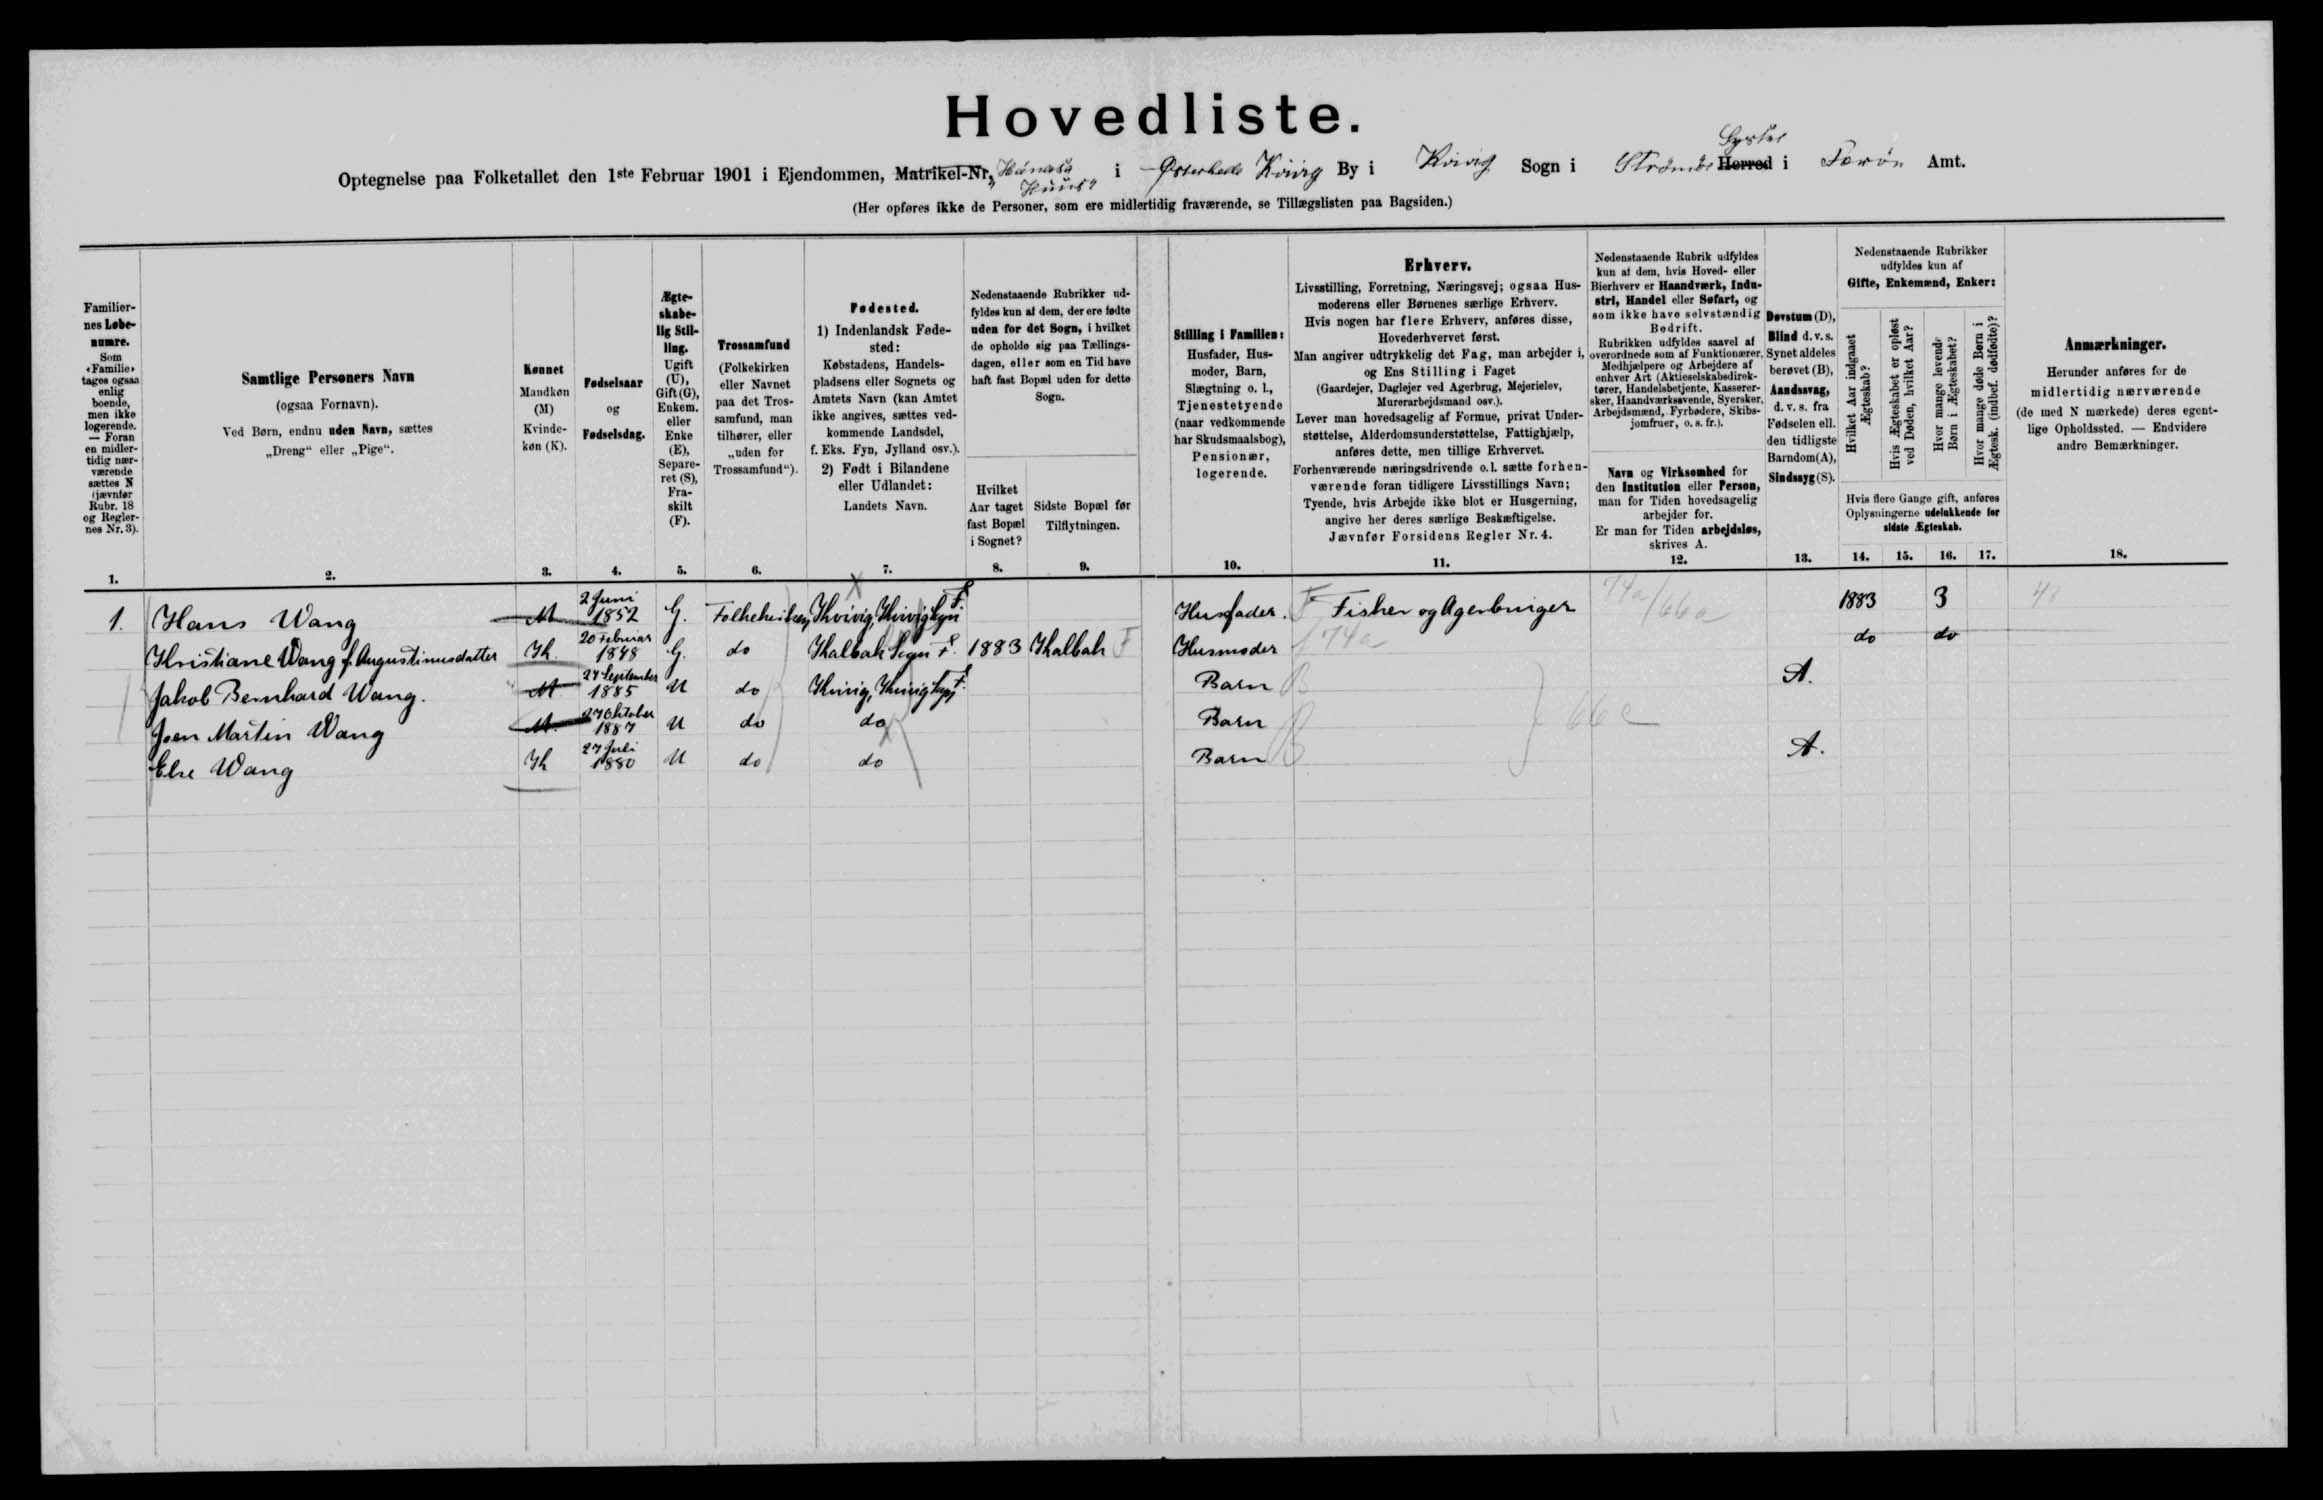 Hovedliste.
Syssel
Optegnelse paa Folketallet den 1ste Februar 1901 i Ejendommen, Matrikel-Nr. i Kvivig By i Kvivig Sogn i Strömö Herred i Færöe Amt.
Huus"
(Her opføres ikke de Personer, som ere midlertidig fraværende, se Tillægslisten paa Bagsiden.)
Familiernes Løbenumre.
Som «Familie» tages ogsaa enlig boende, men ikke logerende. — Foran en midlertidig nærværende sættes N (jævnfør Rubr. 18 og Reglernes Nr. 3).
Samtlige Personers Navn
(ogsaa Fornavn).
Ved Børn, endnu uden Navn, sættes
„Dreng“ eller „Pige“.
Kønnet
Mandkøn
(M)
Kvinde-
køn (K).
Fødselsaar
og
Fødselsdag.
Ægteskabelig Stilling.
Ugift (U), Gift (G), Enkem. eller Enke (E), Separeret (S), Fraskilt (F).
Trossamfund
(Folkekirken
eller Navnet
paa det Tros-
samfund, man
tilhører, eller
„uden for
Trossamfund“).
Fødested.
1) Indenlandsk Føde-
sted:
Købstadens, Handels-
pladsens eller Sognets og
Amtets Navn (kan Amtet
ikke angives, sættes ved-
kommende Landsdel,
f. Eks. Fyn, Jylland osv.).
2) Født i Bilandene
eller Udlandet:
Landets Navn.
Nedenstaaende Rubrikker ud-
fyldes kun af dem, der ere fødte
uden for det Sogn, i hvilket
de opholde sig paa Tællings-
dagen, eller som en Tid have
haft fast Bopæl uden for dette
Sogn.
Hvilket
Aar taget
fast Bopæl
i Sognet?
Sidste Bopæl før
Tilflytningen.
Stilling i Familien:
Husfader, Hus-
moder, Barn,
Slægtning o. l.,
Tjenestetyende
(naar vedkommende
har Skudsmaalsbog),
Pensionær,
logerende.
Erhverv.
Livsstilling, Forretning, Næringsvej; ogsaa Hus-
moderens eller Børnenes særlige Erhverv.
Hvis nogen har flere Erhverv, anføres disse,
Hovederhvervet først.
Man angiver udtrykkelig det Fag, man arbejder i,
og Ens Stilling i Faget
(Gaardejer, Daglejer ved Agerbrug, Mejerielev,
Murerarbejdsmand osv.).
Lever man hovedsagelig af Formue, privat Under-
støttelse, Alderdomsunderstøttelse, Fattighjælp,
anføres dette, men tillige Erhvervet.
Forhenværende næringsdrivende o.l. sætte forhen-
værende foran tidligere Livsstillings Navn;
Tyende, hvis Arbejde ikke blot er Husgerning,
angive her deres særlige Beskæftigelse.
Jævnfør Forsidens Regler Nr. 4.
Nedenstaaende Rubrik udfyldes
kun af dem, hvis Hoved- eller
Bierhverv er Haandværk, Indu-
stri, Handel eller Søfart, og
som ikke have selvstændig
Bedrift.
Rubrikken udfyldes saavel af
overordnede som af Funktionærer,
Medhjælpere og Arbejdere af
enhver Art (Aktieselskabsdirek-
tører, Handelsbetjente, Kasserer-
sker, Haandværkssvende, Syersker,
Arbejdsmænd, Fyrbødere, Skibs-
jomfruer, o. s. fr.).
Navn og Virksomhed for
den Institution eller Person,
man for Tiden hovedsagelig
arbejder for.
Er man for Tiden arbejdsløs,
skrives A.
Døvstum (D),
Blind d. v. s.
Synet aldeles
berøvet (B),
Aandssvag,
d. v. s. fra
Fødselen ell.
den tidligste
Barndom (A),
Sindssyg (S).
Nedenstaaende Rubrikker
udfyldes kun af
Gifte, Enkemænd, Enker:
Hvilket Aar indgaaet Ægteskab?
Hvis Ægteskabet er opløst ved Døden, hvilket Aar?
Hvor mange levende Børn i Ægteskabet?
Hvor mange døde Børn i Ægtesk. (indbef. dødfødte)?
Hvis flere Gange gift, anføres
Oplysningerne udelukkende for
sidste Ægteskab.
Anmærkninger.
Herunder anføres for de
midlertidig nærværende
(de med N mærkede) deres egent-
lige Opholdssted. — Endvidere
andre Bemærkninger.
1. 2. 3. 4. 5. 6. 7. 8. 9. 10. 11. 12. 13. 14. 15. 16. 17. 18.
1. Hans Wang M 2 Juni 1852 G. Folkekirken Kvivig, Kvivig Sogn F Husfader. F Fisker og Agerbruger 74a/66a 1883 3
Kristiane Wang f. Augustinusdatter K. 20 Februar 1848 G. do Kalbak Sogn F. 1883 Kalbak F Husmoder 74a do do
Jakob Bernhard Wang. M 24 September 1885 U do Kvivig, Kvivig Sogn F. Barn B A.
Joen Martin Wang M. 27 Oktober 1887 U do do Barn B 66c
Else Wang K 27 Juli 1880 U do do Barn B A.